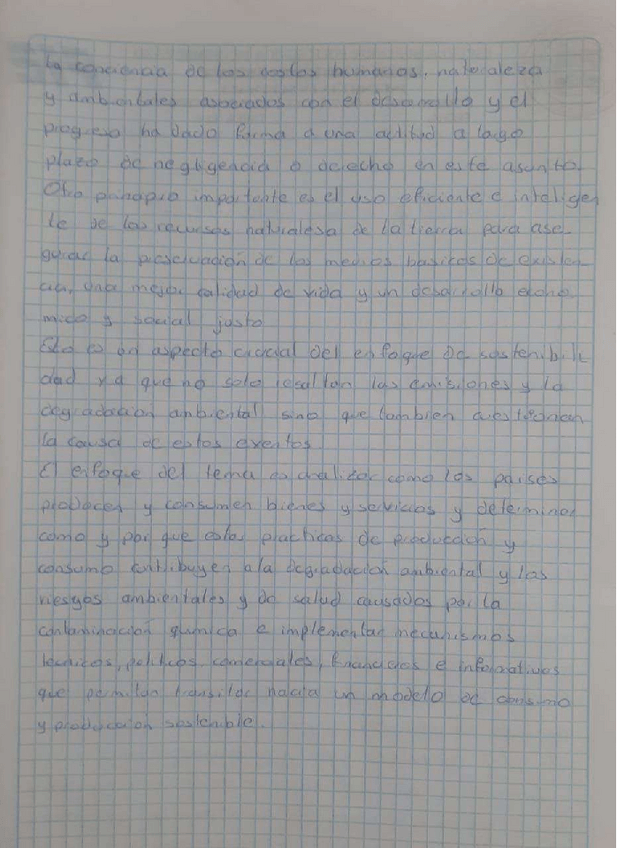 la conciencia de los costos humanos, naturaleza
y ambientales asociados con el desarrollo y el
progreso ha dado forma a una actitud a largo
plazo de negligencia o derecho en este asunto.
Otro principio importante es el uso eficiente e inteligen
te de los recursos naturalesa de la tierra para ase
gurar la preservación de los medios basicos de existen
cia, una mejor calidad de vida y un desarrollo econo
mico y social justo
Esto es un aspecto crucial del enfoque de sostenibili
dad ya que no solo resaltan las emisiones y la
degradación ambiental sino que tambien cuestionan
la causa de estos eventos
El enfoque del tema es analizar como los paises
producen y consumen bienes y servicios y determinar
como y por que estas practicas de producción y
consumo contribuyen a la degradación ambiental y los
riesgos ambientales y de salud causados por la
contaminación quimica e implementar mecanismos
tecnicos, politicos, comerciales, financieros e informativos
que permitan transitar hacia un modelo de consumo
y producción sostenible.